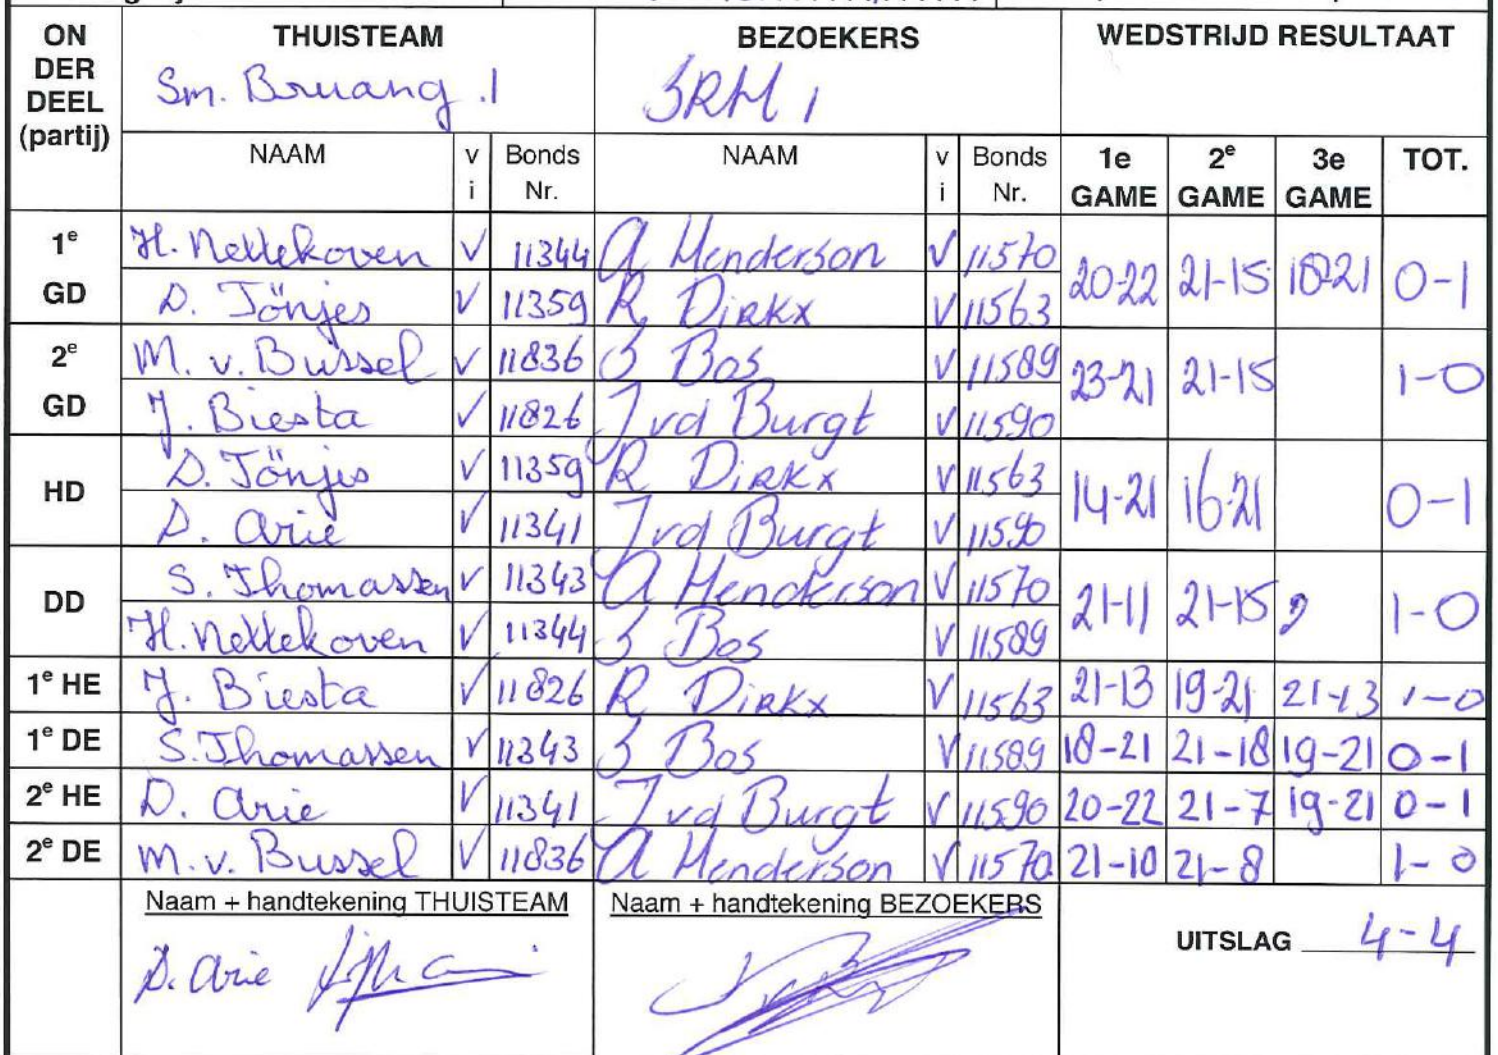 ON DER DEEL (partij) THUISTEAM BEZOEKERS WEDSTRIJD RESULTAAT
Sm. Bruang .1 SRM 1
NAAM vi Bonds Nr. NAAM vi Bonds Nr. 1e GAME 2e GAME 3e GAME TOT.
1e GD H. Nettekoven V 11344 A Henderson V 11570 20-22 21-15 18-21 0-1
D. Tönjes V 11359 R Dirkx V 11563
2e GD M. v. Bussel V 11836 S Bos V 11589 23-21 21-15 1-0
J. Biesta V 11826 J vd Burgt V 11590
HD D. Tönjes V 11359 R Dirkx V 11563 14-21 16-21 0-1
D. Arie V 11341 J vd Burgt V 11590
DD S. Thomassen V 11343 A Henderson V 11570 21-11 21-15 1-0
H. Nettekoven V 11344 S Bos V 11589
1e HE J. Biesta V 11826 R Dirkx V 11563 21-13 19-21 21-13 1-0
1e DE S. Thomassen V 11343 S Bos V 11589 18-21 21-18 19-21 0-1
2e HE D. Arie V 11341 J vd Burgt V 11590 20-22 21-7 19-21 0-1
2e DE M. v. Bussel V 11836 A Henderson V 11570 21-10 21-8 1-0
Naam + handtekening THUISTEAM Naam + handtekening BEZOEKERS
UITSLAG 4-4
D. Arie